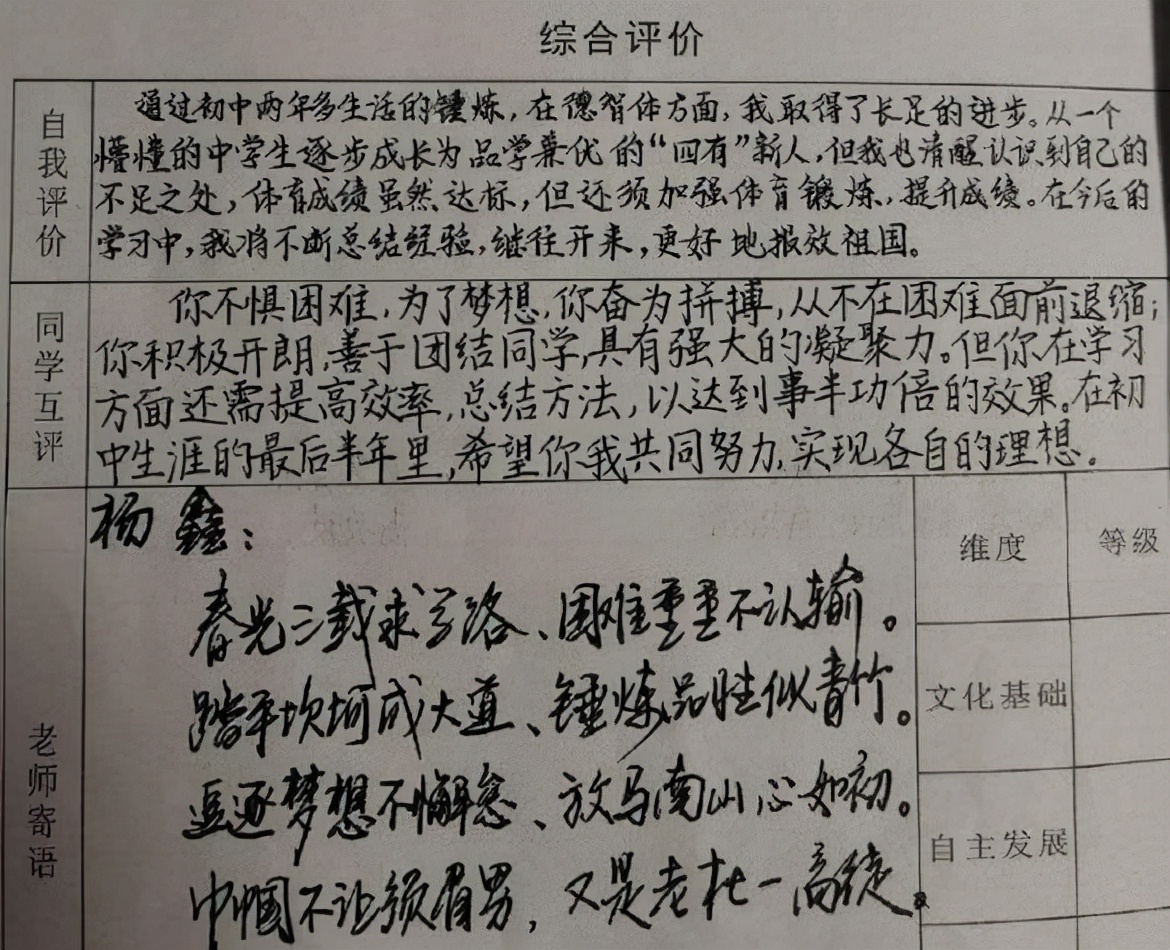 综合评价
自我评价
通过初中两年多生活的锤炼，在德智体方面，我取得了长足的进步。从一个
懵懂的中学生逐步成长为品学兼优的“四有”新人，但我也清醒认识到自己的
不足之处，体育成绩虽然达标，但还须加强体育锻炼，提升成绩。在今后的
学习中，我将不断总结经验，继往开来，更好地报效祖国。
同学互评
你不惧困难，为了梦想，你奋为拼搏，从不在困难面前退缩；
你积极开朗，善于团结同学，具有强大的凝聚力。但你在学习
方面还需提高效率，总结方法，以达到事半功倍的效果。在初
中生涯的最后半年里，希望你我共同努力，实现各自的理想。
老师寄语
杨鑫：
春光二载求学路、困难重重不认输。
踏平坎坷成大道、锤炼品性似青竹。
追逐梦想不懈怠、放马南山心如初。
巾帼不让须眉男，又是老杜一高徒。
维度
等级
文化基础
自主发展